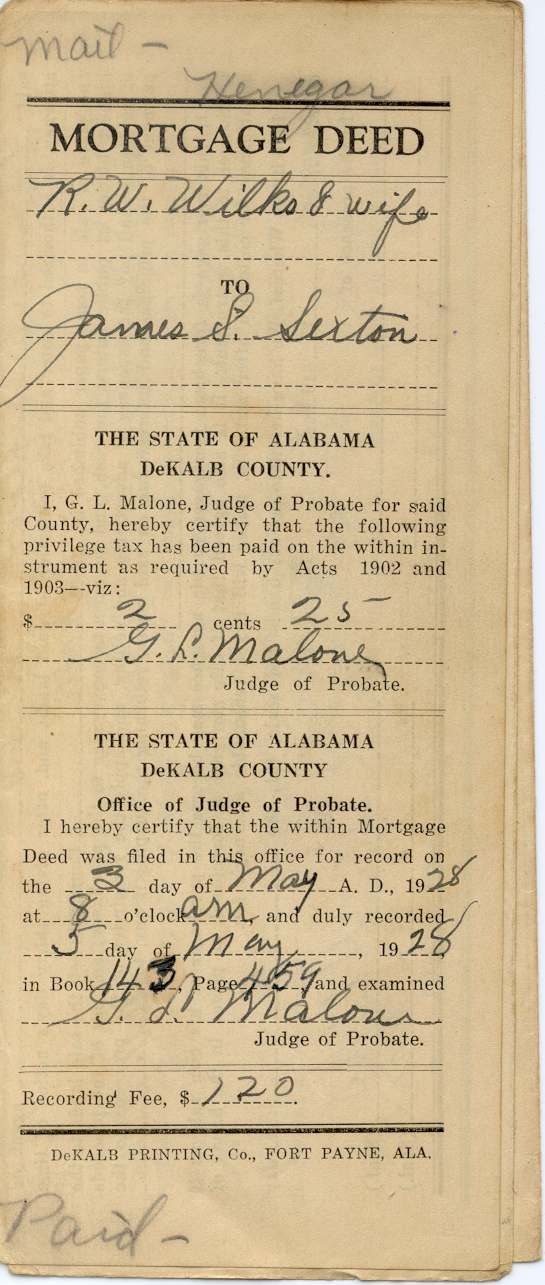 Mail -
Henegar
MORTGAGE DEED
R. W. Wilks & wife
TO
James S. Sexton
THE STATE OF ALABAMA
DeKALB COUNTY.
I, G. L. Malone, Judge of Probate for said
County, hereby certify that the following
privilege tax has been paid on the within in-
strument as required by Acts 1902 and
1903—viz:
$ 2 cents 25
G. L. Malone
Judge of Probate.
THE STATE OF ALABAMA
DeKALB COUNTY
Office of Judge of Probate.
I hereby certify that the within Mortgage
Deed was filed in this office for record on
the 3 day of May A. D., 1928
at 8 o'clock am, and duly recorded
5 day of May, 1928
in Book 143, Page 459, and examined
G. L. Malone
Judge of Probate.
Recording Fee, $ 120.
DeKALB PRINTING, Co., FORT PAYNE, ALA.
Paid -